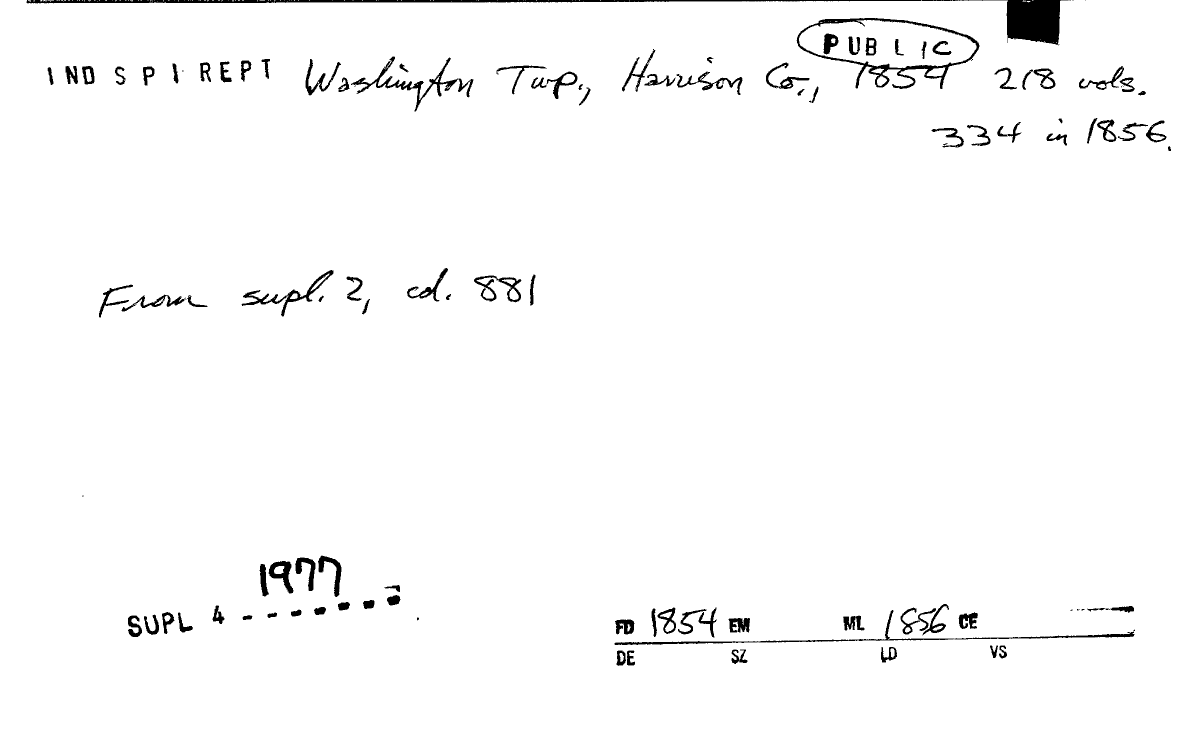 PUBLIC
IND S P I REPT Washington Twp., Harrison Co., 1854 218 vols.
334 in 1856.
From supl. 2, cd. 881
1977
SUPL 4 - - - - - - -
FD 1854 EM ML 1856 CE
DE SZ LD VS